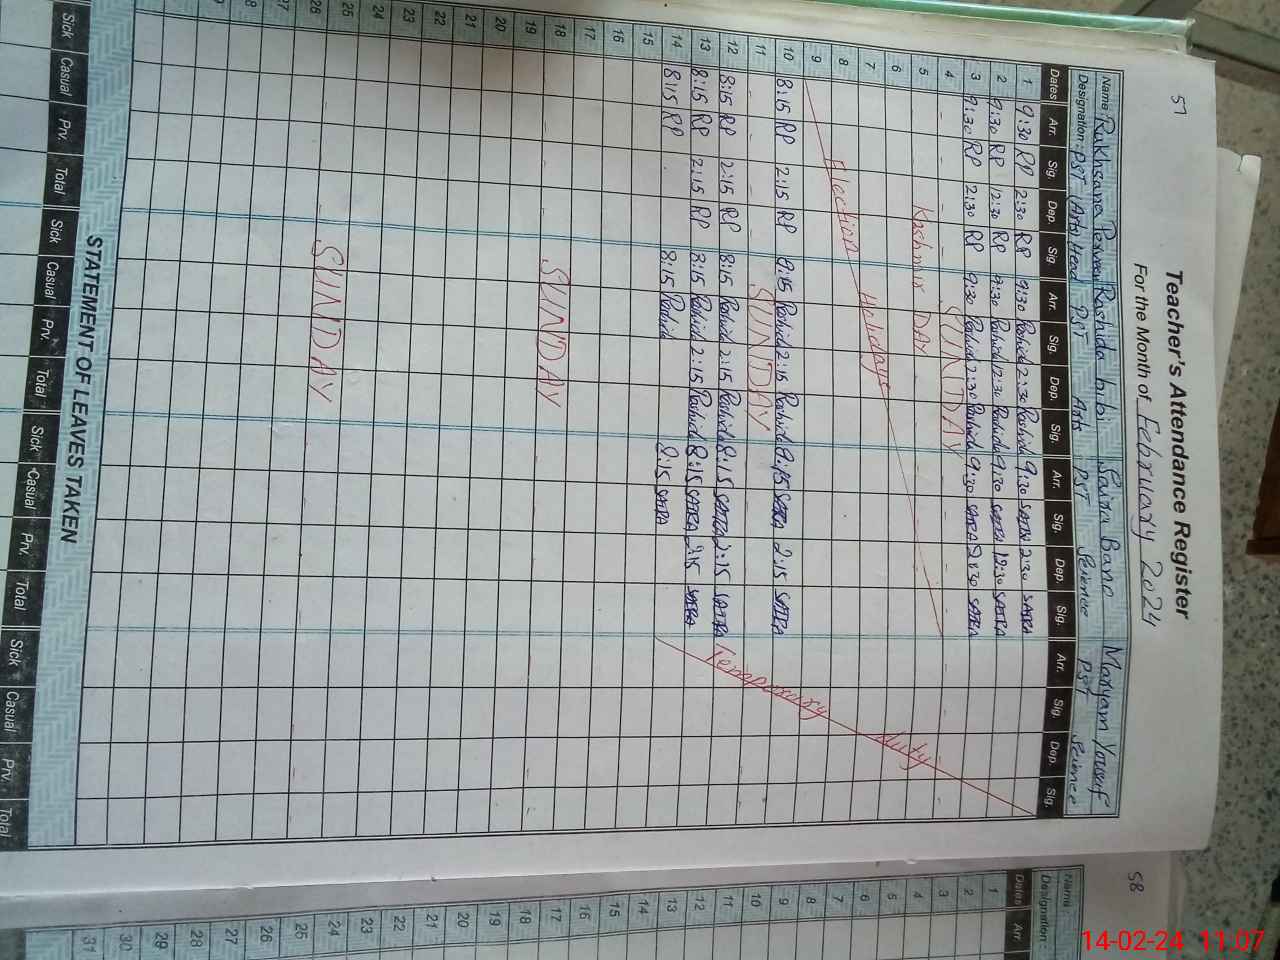 57
Teacher's Attendance Register
For the Month of February 2024
Name Rukhsana Perveen Rashida bibi Saira Bano Maryam Yousuf
Designation: PST (Arts) Head PST Arts PST Science PST Science
Dates Arr. Sig. Dep. Sig Arr. Sig. Dep. Sig. Arr. Sig. Dep. Sig. Arr. Sig. Dep. Sig.
1 9:30 RP 2:30 RP 9:30 Rashida 2:30 Rashida 9:30 SAIRA 2:30 SAIRA
2 9:30 RP 12:30 RP 9:30 Rashida 12:30 Rashida 9:30 SAIRA 12:30 SAIRA
3 9:30 RP 2:30 RP 9:30 Rashida 2:30 Rashida 9:30 SAIRA 2:30 SAIRA
4 SUNDAY
5 Kashmir DAY
6
7
8 Election Holidays
9
10 8:15 RP 2:15 RP 8:15 Rashida 2:15 Rashida 8:15 SAIRA 2:15 SAIRA
11 SUNDAY
12 8:15 RP 2:15 RP 8:15 Rashida 2:15 Rashida 8:15 SAIRA 2:15 SAIRA
13 8:15 RP 2:15 RP 8:15 Rashida 2:15 Rashida 8:15 SAIRA 2:15 SAIRA
14 8:15 RP 8:15 Rashida 8:15 SAIRA
Temporary duty
15
16
17
18 SUNDAY
19
20
21
22
23
24
25 SUNDAY
26
27
STATEMENT OF LEAVES TAKEN
Sick Casual Prv. Total Sick Casual Prv. Total Sick Casual Prv. Total Sick Casual Prv. Total
58
Name:
Designation:
Dates Arr.
1
2
3
4
5
6
7
8
9
10
11
12
13
14
15
16
17
18
19
20
21
22
23
24
25
26
27
28
29
30
31
14-02-24 11:07